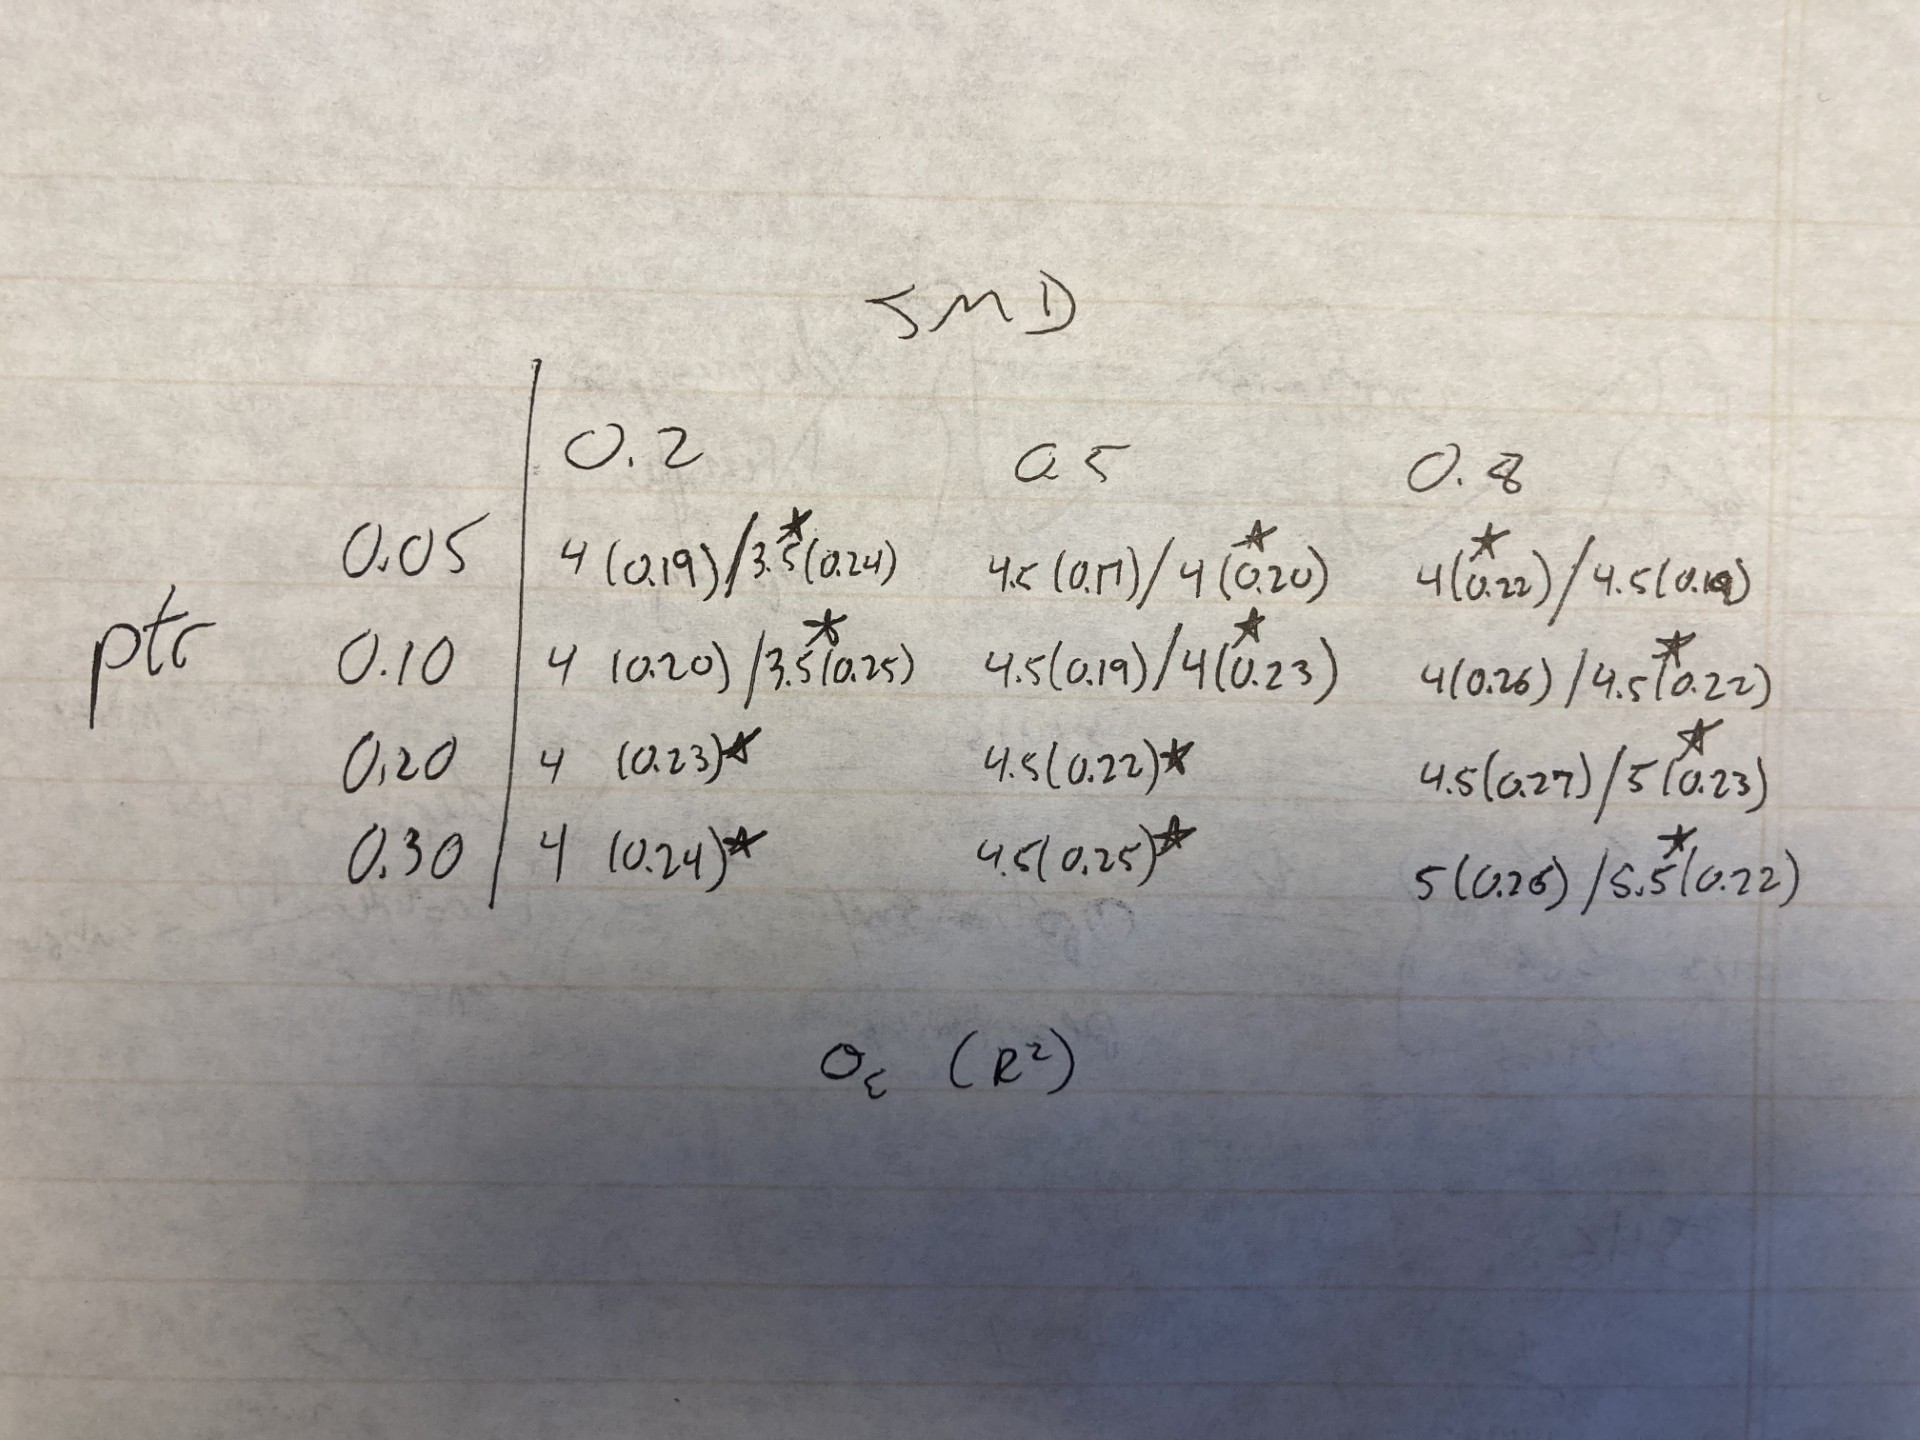 SMD
0.2 0.5 0.8
0.05 4 (0.19)/3.5★(0.24) 4.5(0.17)/4★(0.20) 4★(0.22)/4.5(0.19)
ptr 0.10 4 (0.20)/3.5★(0.25) 4.5(0.19)/4★(0.23) 4(0.26)/4.5★(0.22)
0.20 4 (0.23)★ 4.5(0.22)★ 4.5(0.27)/5★(0.23)
0.30 4 (0.24)★ 4.5(0.25)★ 5(0.26)/5.5★(0.22)
σε (R²)